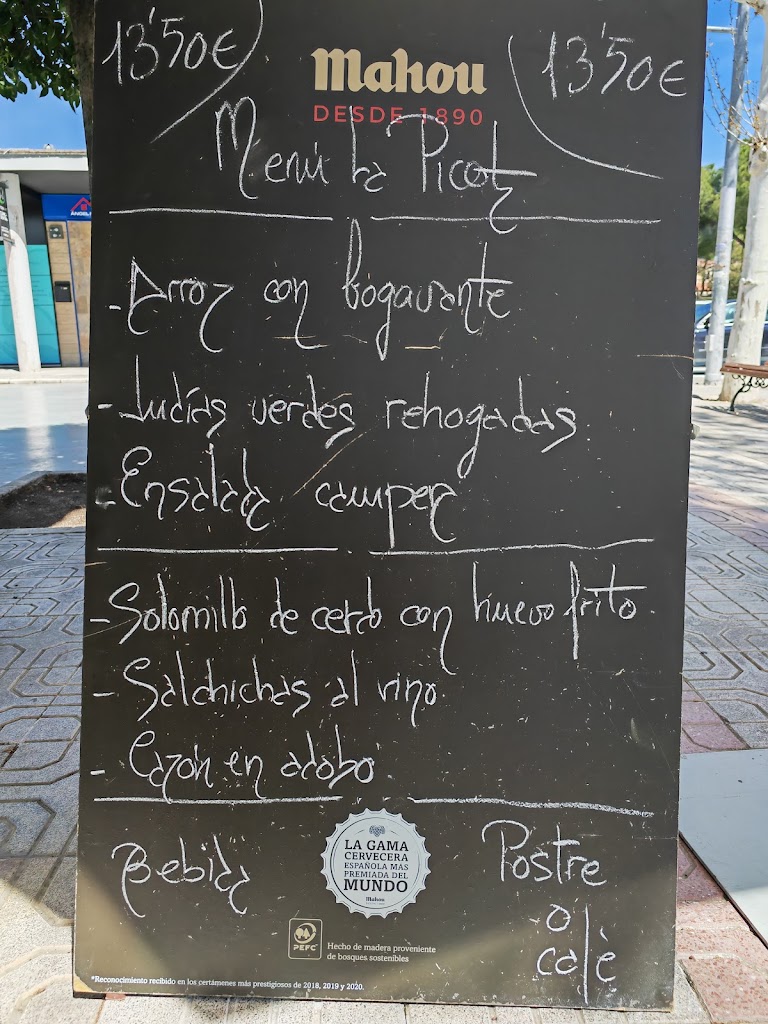 13'50€
Mahou
DESDE 1890
13'50€
Menú La Picota
- Arroz con bogavante
- Judías verdes rehogadas
- Ensalada campera
- Solomillo de cerdo con huevo frito
- Salchichas al vino
- Cazón en adobo
Bebida
LA GAMA
CERVECERA
ESPAÑOLA MÁS
PREMIADA DEL
MUNDO
Mahou
Postre
o
café
PEFC
Hecho de madera proveniente
de bosques sostenibles
*Reconocimiento recibido en los certámenes más prestigiosos de 2018, 2019 y 2020.